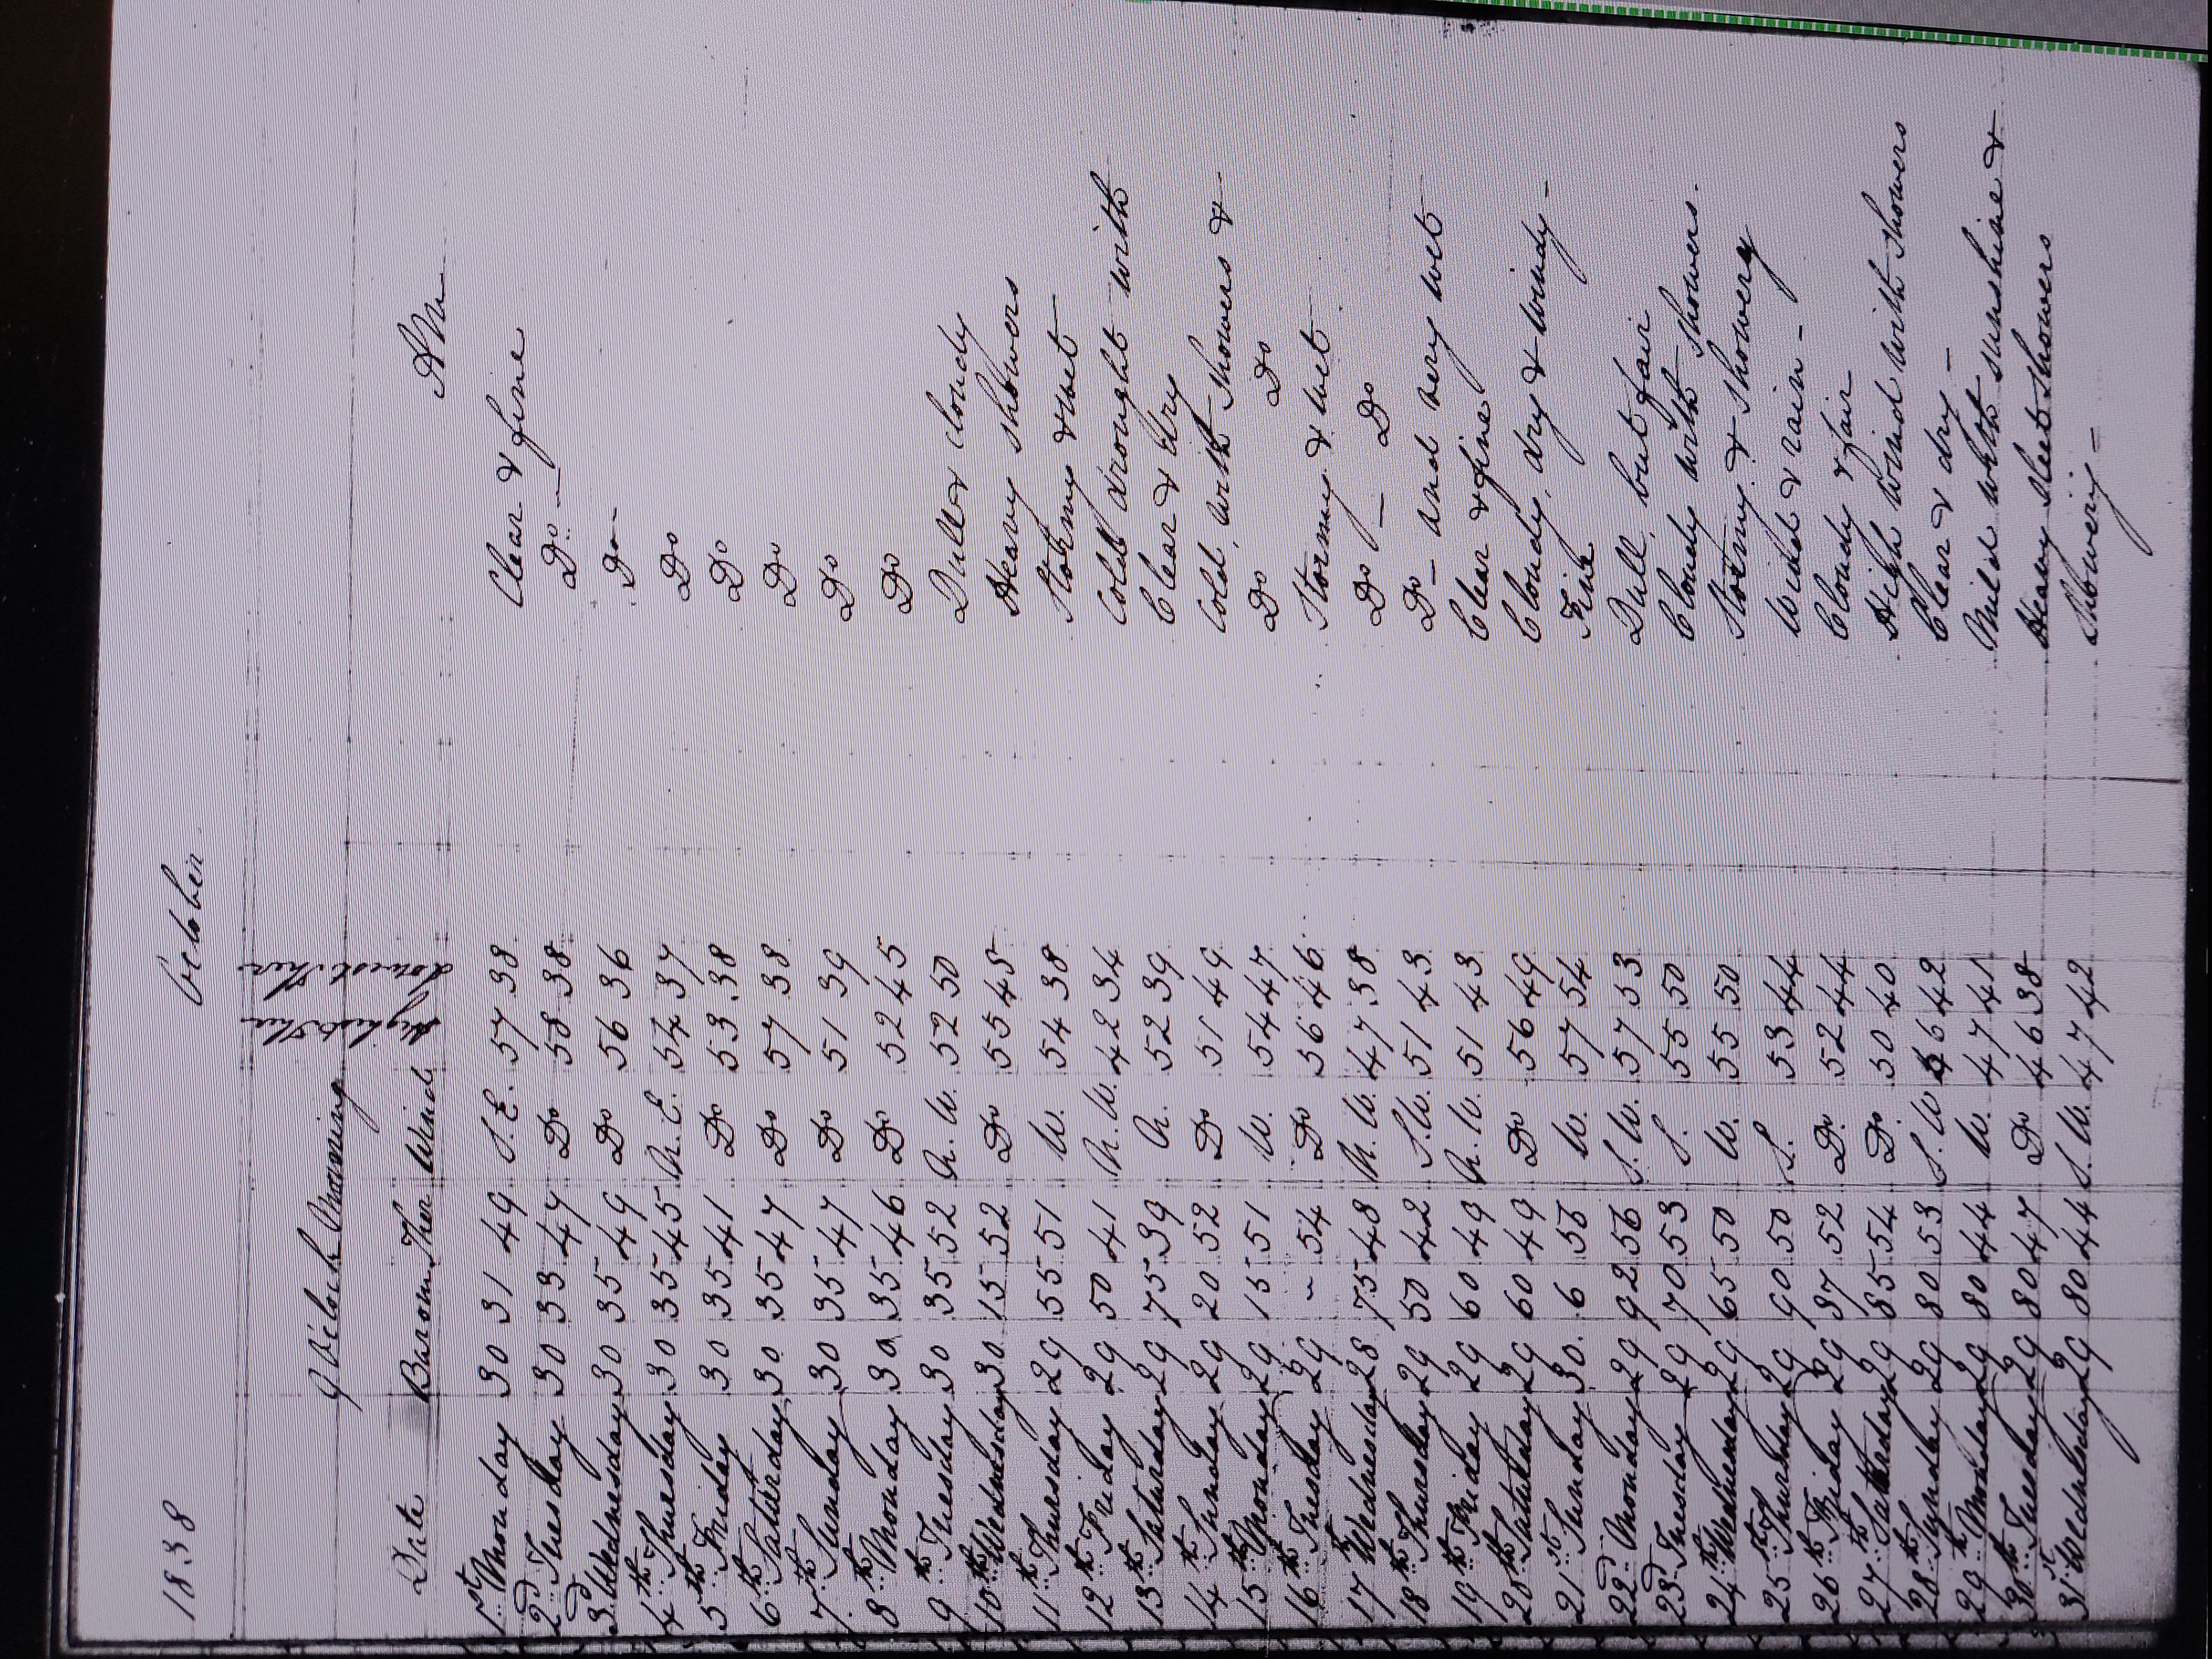 1838 October
Highest Ther
Lowest Ther
9 O'clock Morning
Date Barom Ther Wind AM
1st Monday 30 31 49 S.E. 57 38 Clear & fine
2d Tuesday 30 33 47 Do 58 38 Do —
3d Wednesday 30 35 49 Do 56 36 Do -
4th Thursday 30 35 45 N.E. 54 37 Do
5th Friday 30 35 41 Do 53 38 Do
6th Saturday 30 35 47 Do 57 38 Do
7th Sunday 30 35 47 Do 51 39 Do
8th Monday 30 35 46 Do 52 45 Do
9th Tuesday 30 35 52 N.W. 52 50 Dull & cloudy
10th Wednesday 30 15 52 Do 55 45 Heavy showers
11th Thursday 29 55 51 W. 54 38 Stormy & wet
12th Friday 29 50 41 N.W. 42 34 Cold drought with
13th Saturday 29 75 39 N. 52 39 Clear & dry
14th Sunday 29 20 52 Do 51 49 Cold, with showers & -
15th Monday 29 15 51 W. 54 47 Do Do
16th Tuesday 29 ~ 54 Do 56 46 Stormy & wet
17th Wednesday 28 75 48 N.W. 47 38 Do — Do
18th Thursday 29 50 42 S.W. 51 43 Do - and very wet
19th Friday 29 60 49 N.W. 51 43 Clear & fine
20th Saturday 29 60 49 Do 56 49 Cloudy, dry & windy -
21st Sunday 30. 6 56 W. 57 54 Fine
22d Monday 29 92 56 S.W. 57 53 Dull, but fair
23d Tuesday 29 70 53 S. 55 50 Cloudy with showers.
24th Wednesday 29 65 50 W. 55 50 Stormy & showery
25th Thursday 29 90 50 S. 53 44 Wind & rain -
26th Friday 29 87 52 Do 52 44 Cloudy & fair
27th Saturday 29 85 54 Do 50 40 High wind with showers
28th Sunday 29 80 53 S.W 46 42 Clear & dry -
29th Monday 29 80 44 W. 47 41 Mild with sunshine &
30th Tuesday 29 80 47 Do 46 38 Heavy sleet showers
31st Wednesday 29 80 44 S.W. 47 42 Showery -